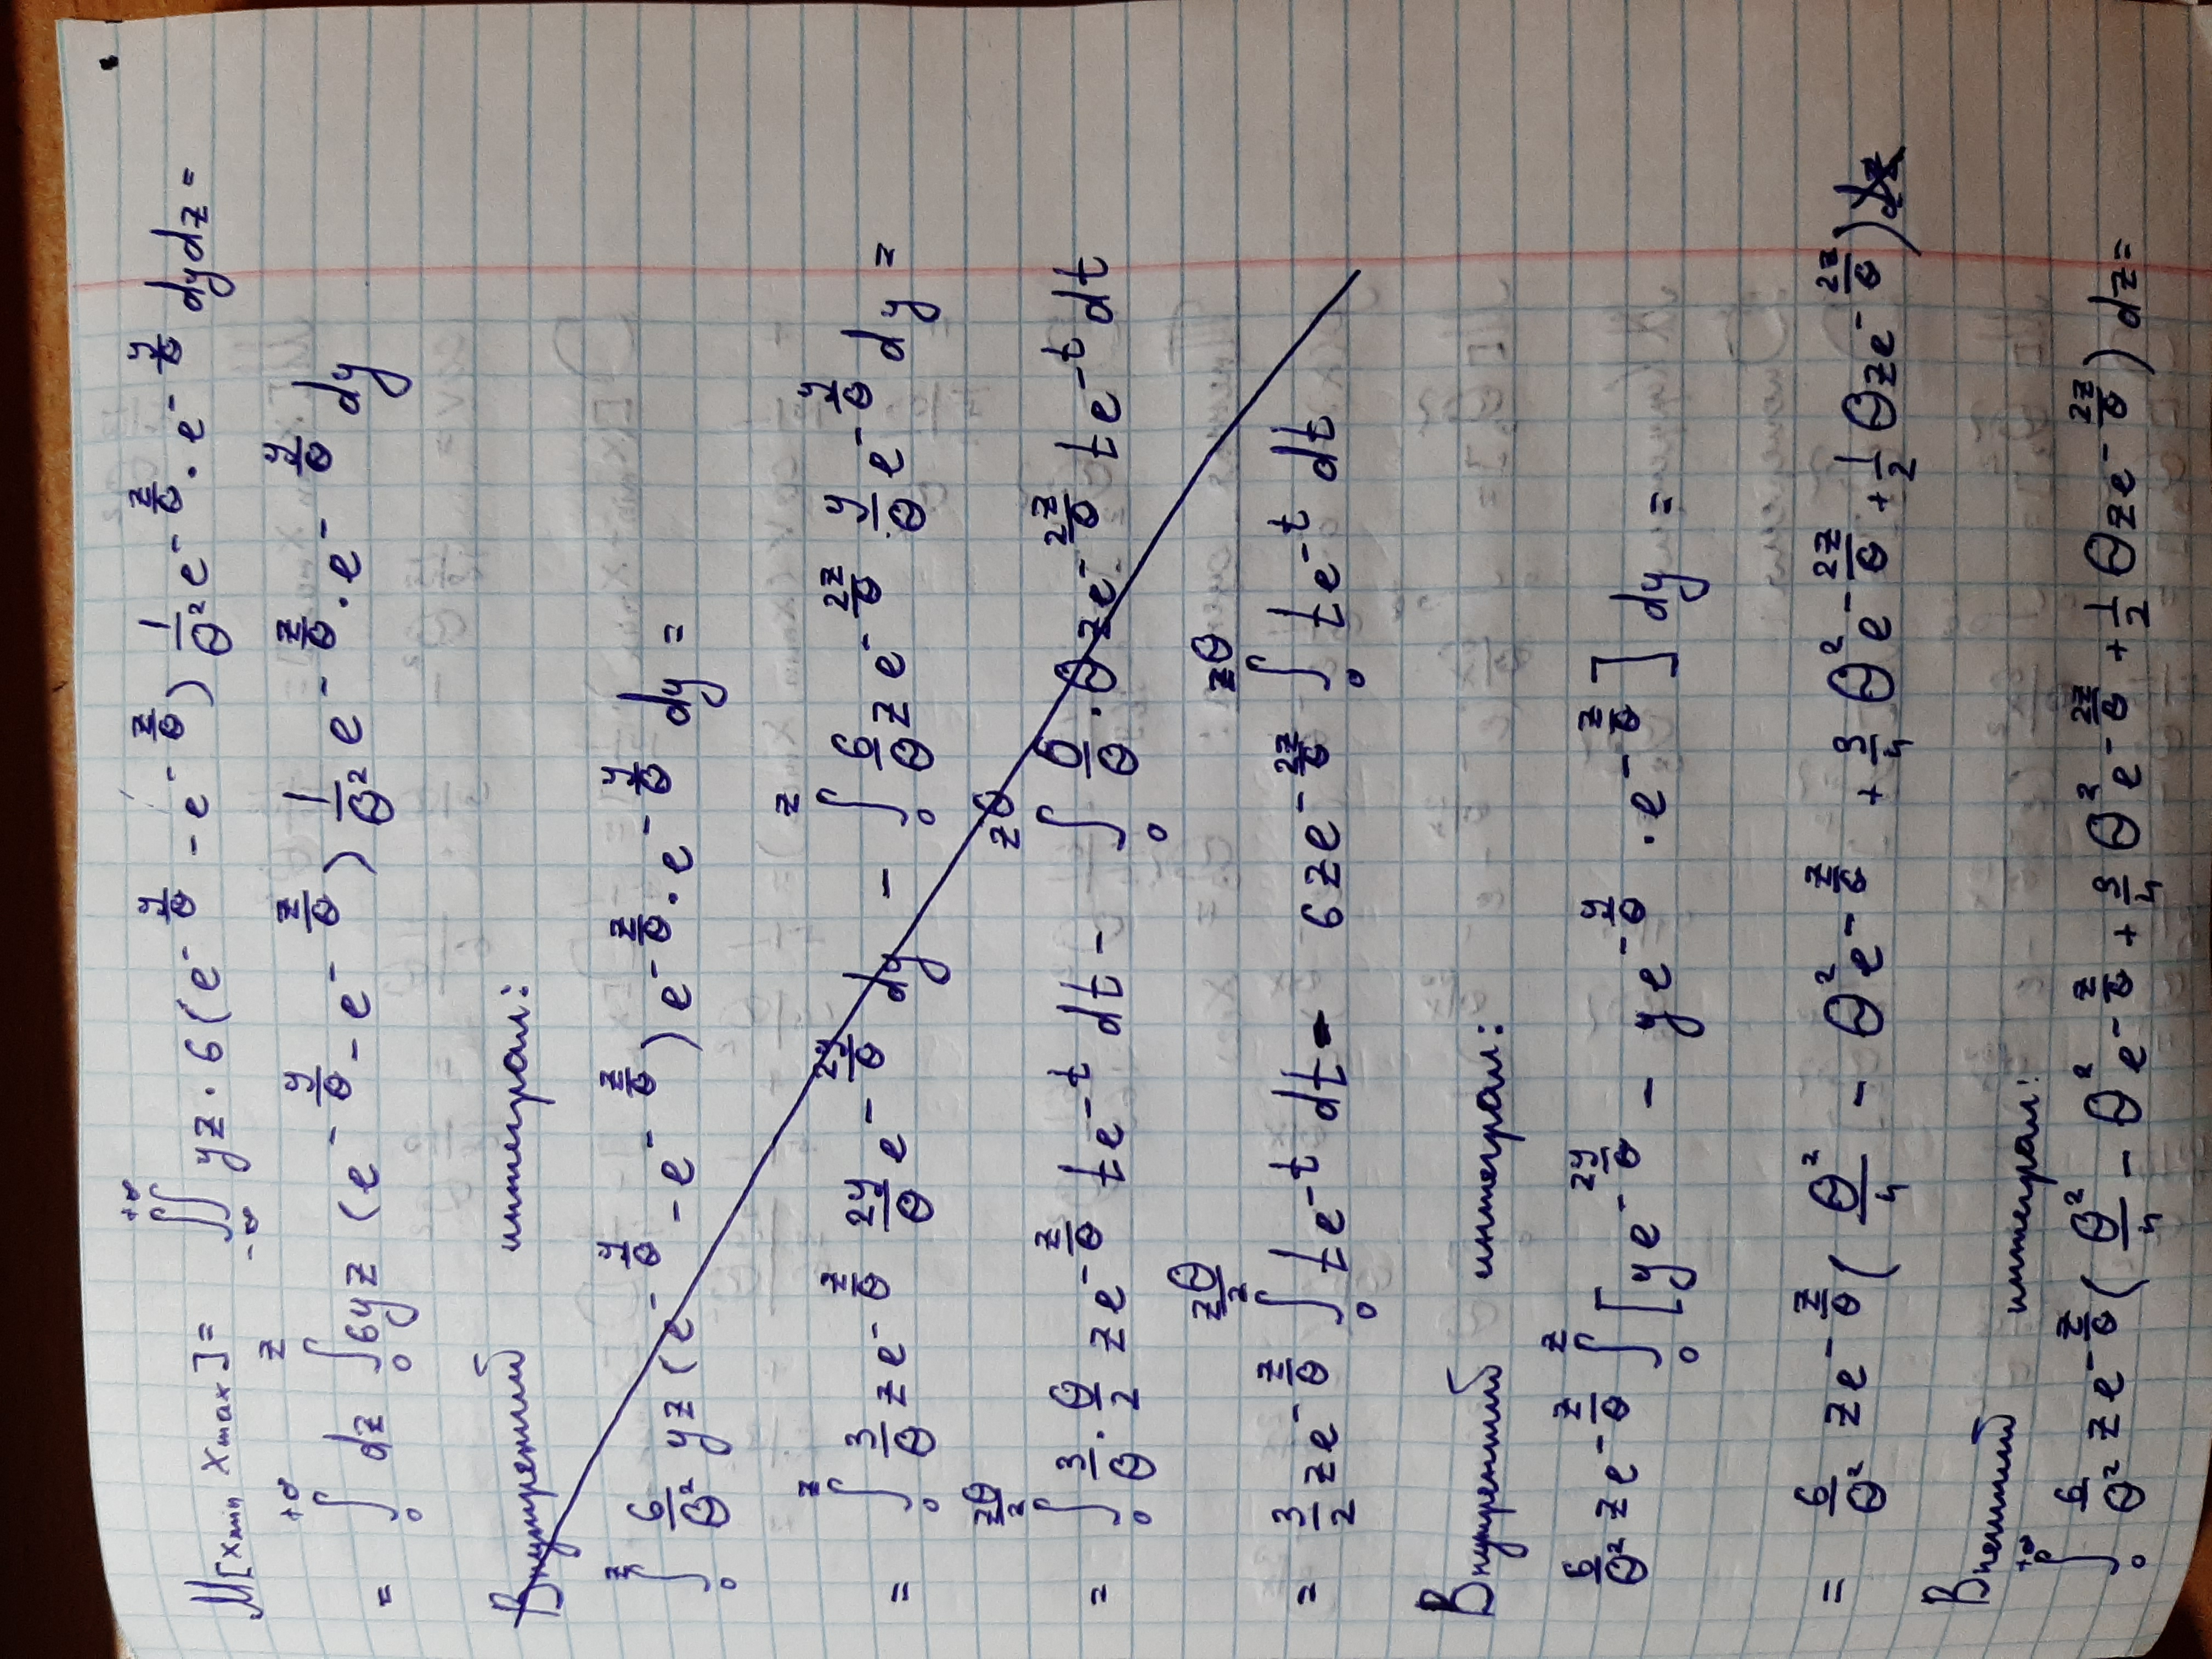 M[x_min x_max] = ∬_{-∞}^{+∞} yz · 6(e^{-y/θ} - e^{-z/θ}) 1/θ² e^{-z/θ} · e^{-y/θ} dydz =
= ∫_0^{+∞} dz ∫_0^z 6yz (e^{-y/θ} - e^{-z/θ}) 1/θ² e^{-z/θ} · e^{-y/θ} dy
Внутрений интеграл:
∫_0^z 6/θ² yz (e^{-y/θ} - e^{-z/θ}) e^{-z/θ} · e^{-y/θ} dy =
= ∫_0^z 3/θ z e^{-z/θ} 2y/θ e^{-2y/θ} dy - ∫_0^z 6/θ z e^{-2z/θ} y/θ e^{-y/θ} dy =
= ∫_0^{zθ/2} 3/θ · θ/2 z e^{-z/θ} t e^{-t} dt - ∫_0^{zθ} 6/θ · θ z e^{-2z/θ} t e^{-t} dt
= 3/2 z e^{-z/θ} ∫_0^{zθ/2} t e^{-t} dt - 6 z e^{-2z/θ} ∫_0^{zθ} t e^{-t} dt
Внутренний интеграл:
6/θ² z e^{-z/θ} ∫_0^z [y e^{-2y/θ} - y e^{-y/θ} · e^{-z/θ}] dy =
= 6/θ² z e^{-z/θ} (θ²/4 - θ² e^{-z/θ} + 3/4 θ² e^{-2z/θ} + 1/2 θ z e^{-2z/θ})
Внешний интеграл:
∫_0^{+∞} 6/θ² z e^{-z/θ} (θ²/4 - θ² e^{-z/θ} + 3/4 θ² e^{-2z/θ} + 1/2 θ z e^{-2z/θ}) dz =